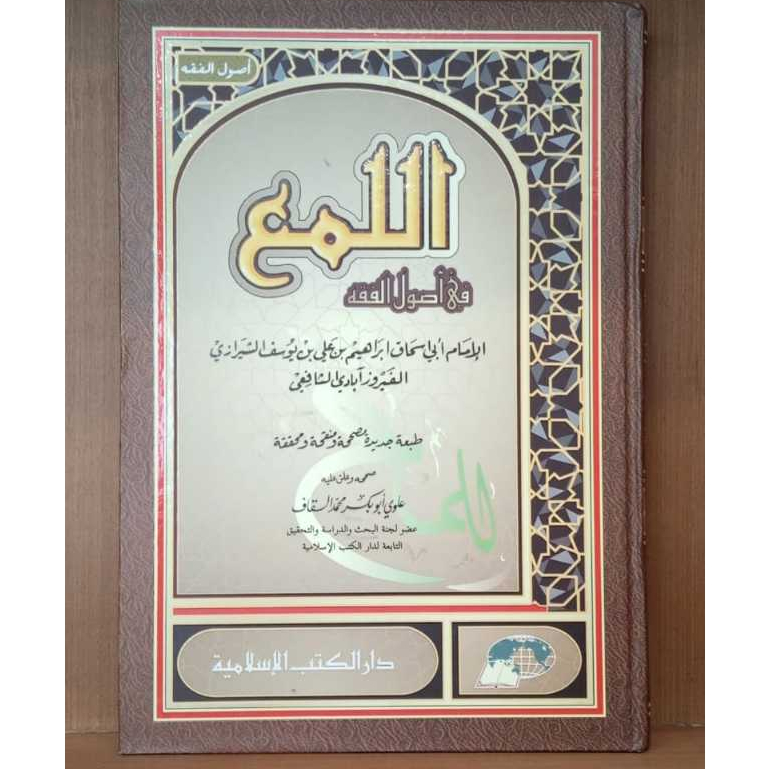 أصول الفقه
اللمع
في أصول الفقه
الإمام أبي اسحاق ابراهيم بن علي بن يوسف الشيرازي
الفيروزآبادي الشافعي
طبعة جديدة مصححة ومنقحة ومحققة
صححه وعلق عليه
علوي أبو بكر محمد السقاف
عضو لجنة البحث والدراسة والتحقيق
التابعة لدار الكتب الإسلامية
اللمع
دار الكتب الإسلامية